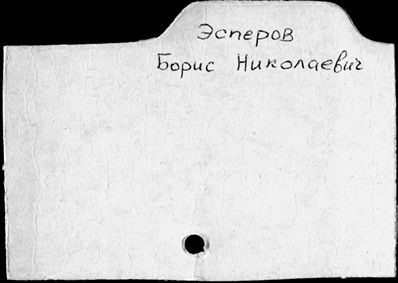 Эсперов
Борис Николаевич